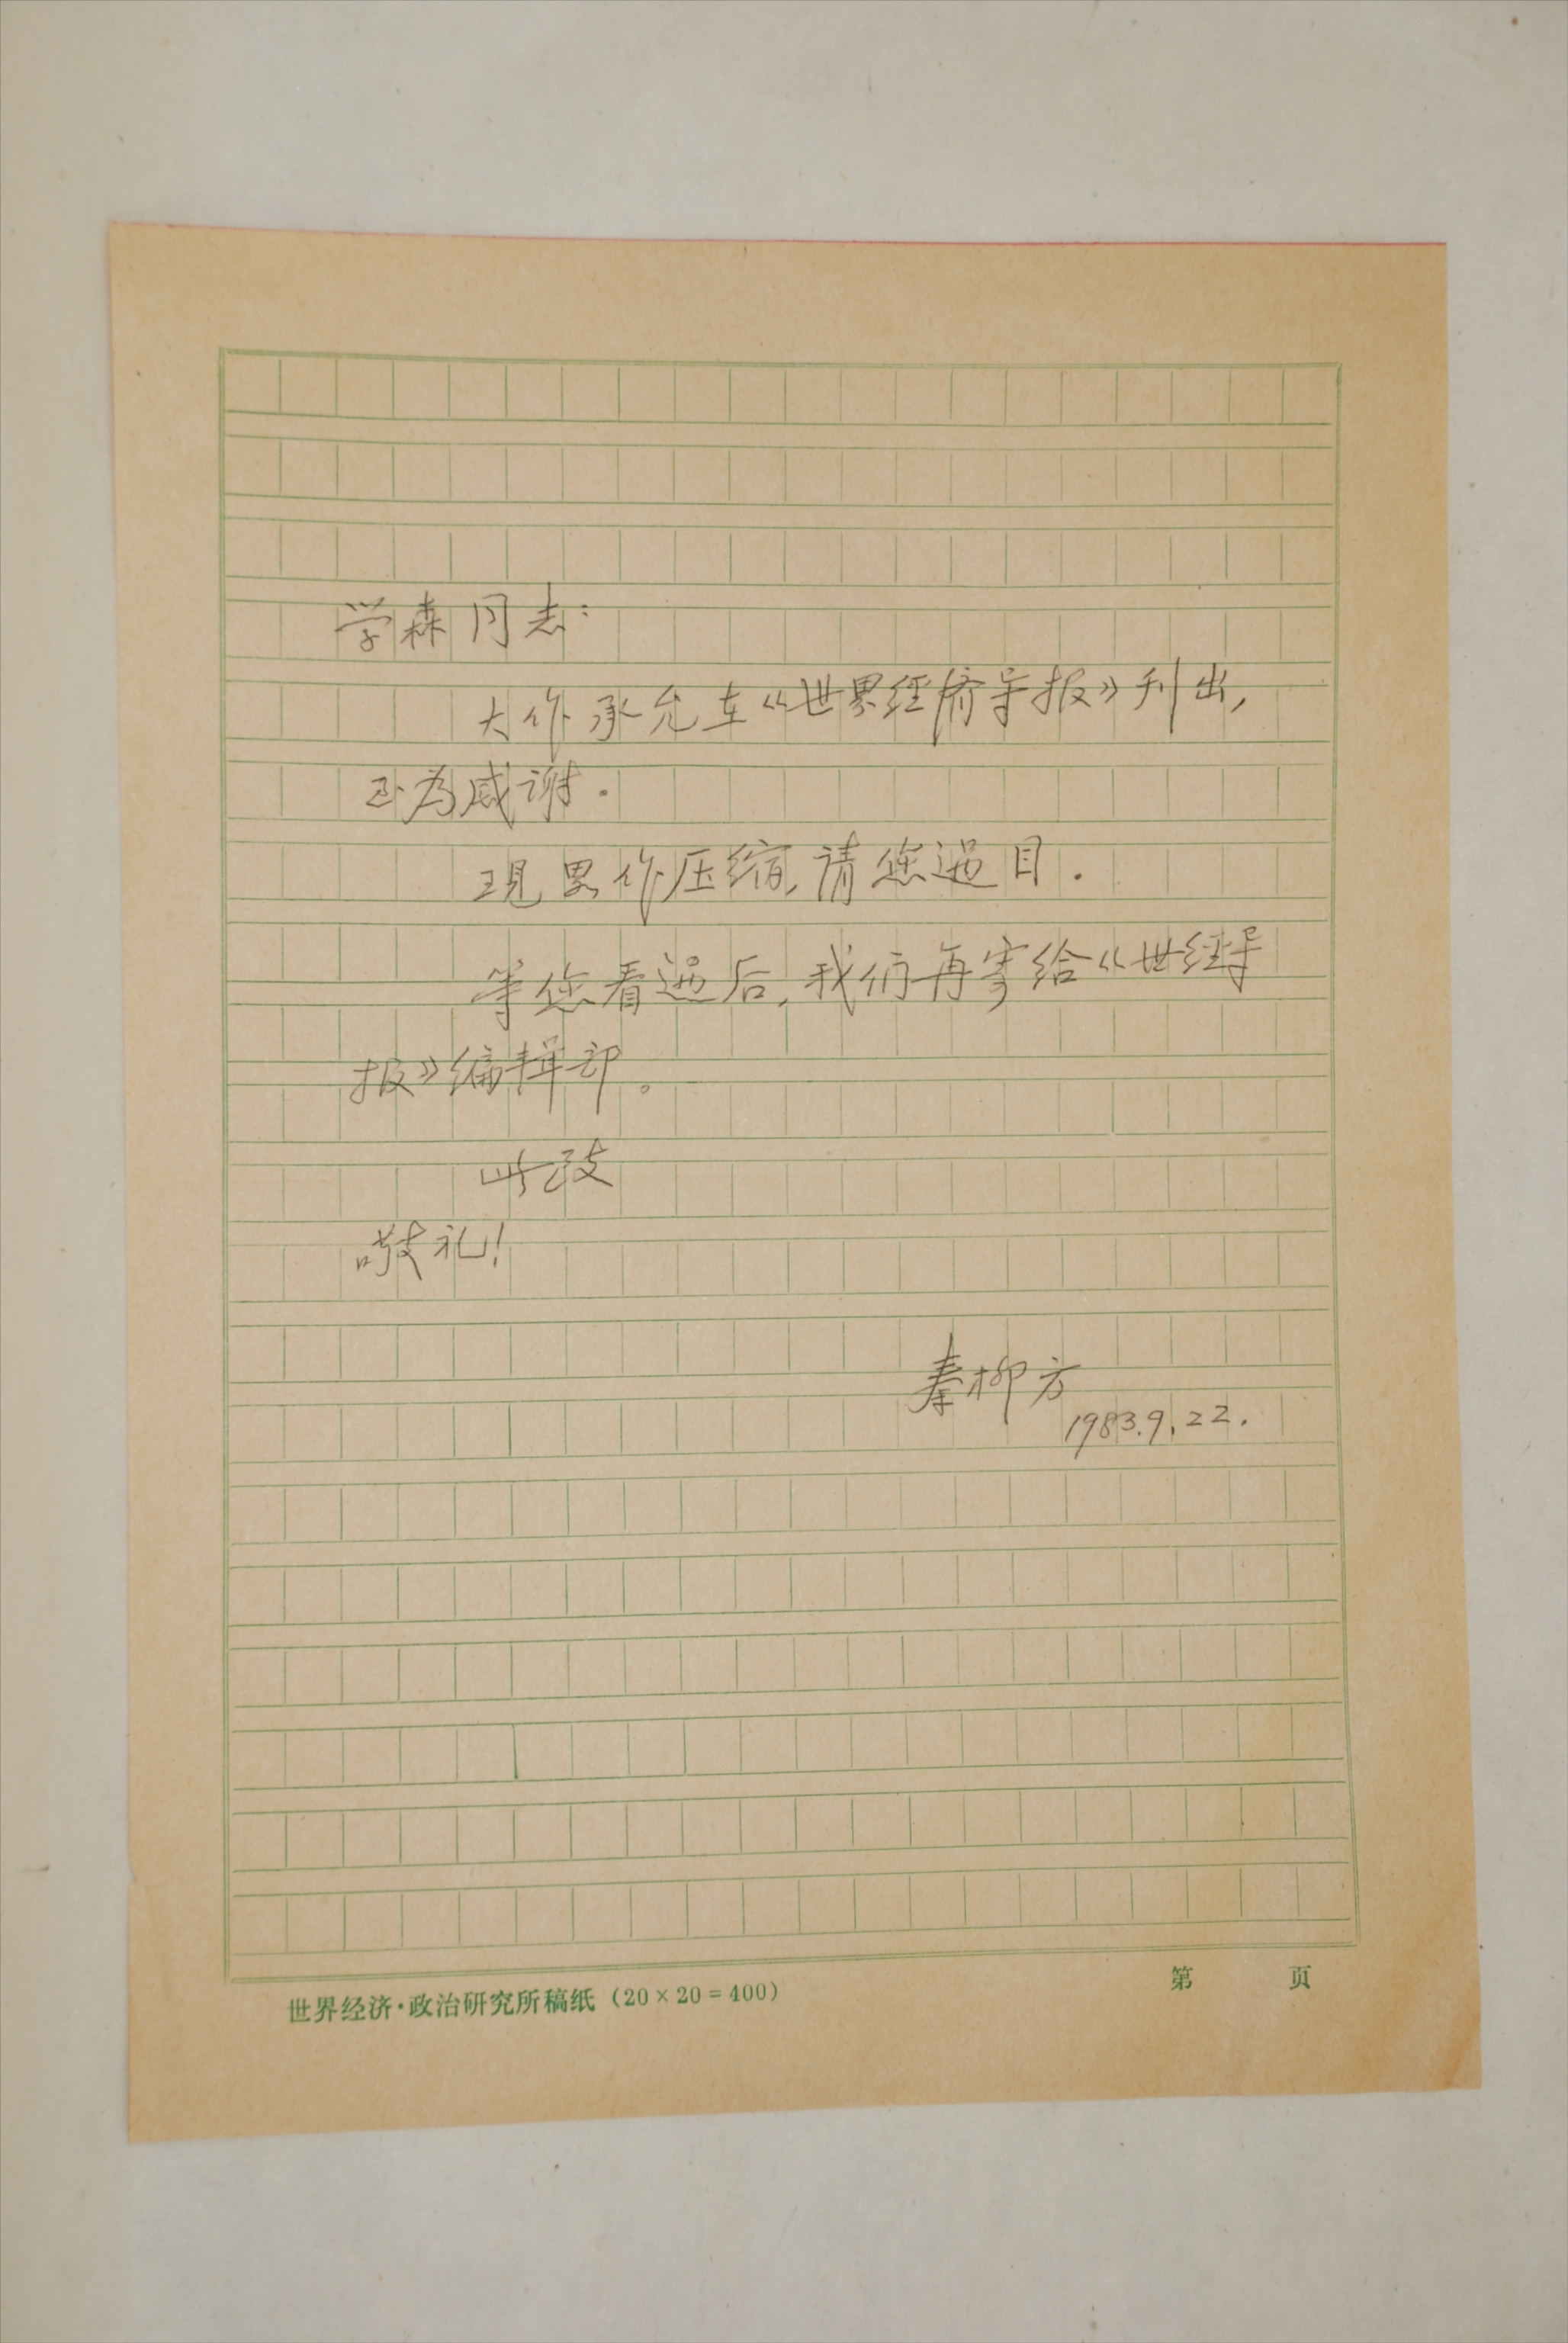 学森同志:
大作承允在《世界经济导报》刊出,
至为感谢.
现略作压缩,请您过目.
等您看过后,我们再寄给《世经导
报》编辑部。
此致
敬礼!
秦柳方
1983.9.22.
世界经济·政治研究所稿纸(20×20=400)
第 页